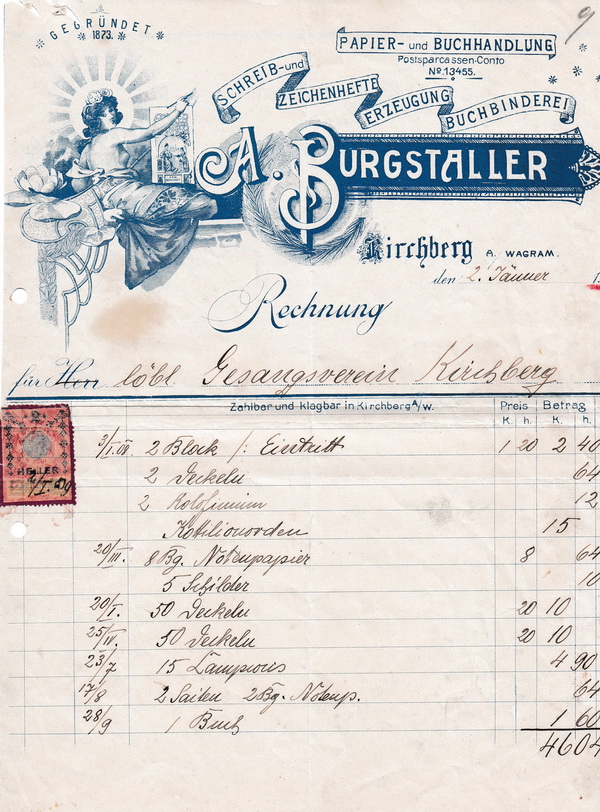 GEGRÜNDET
1873.
PAPIER- und BUCHHANDLUNG
Postsparcassen-Conto
No. 13455.
SCHREIB- und
ZEICHENHEFTE
ERZEUGUNG
BUCHBINDEREI
A. BURGSTALLER
Kirchberg A. WAGRAM.
den 2. Jänner
Rechnung
für Herr löbl. Gesangsverein Kirchberg
Zahlbar und klagbar in Kirchberg A/W. Preis Betrag
K. h. K. h.
2
HELLER
3/I.08 2 Block /: Eintritt 1 20 2 40
2 Deckeln 64
2 12
Kotilionorden 15
20/III. 8 Bg. Notenpapier 8 64
5 Schilder 10
20/I. 50 Deckeln 20 10
25/IV. 50 Deckeln 20 10
23/7 15 Lampions 4 90
17/8 2 Saiten 2 Bg. Notenp. 64
28/9 1 Buch 1 60
4604